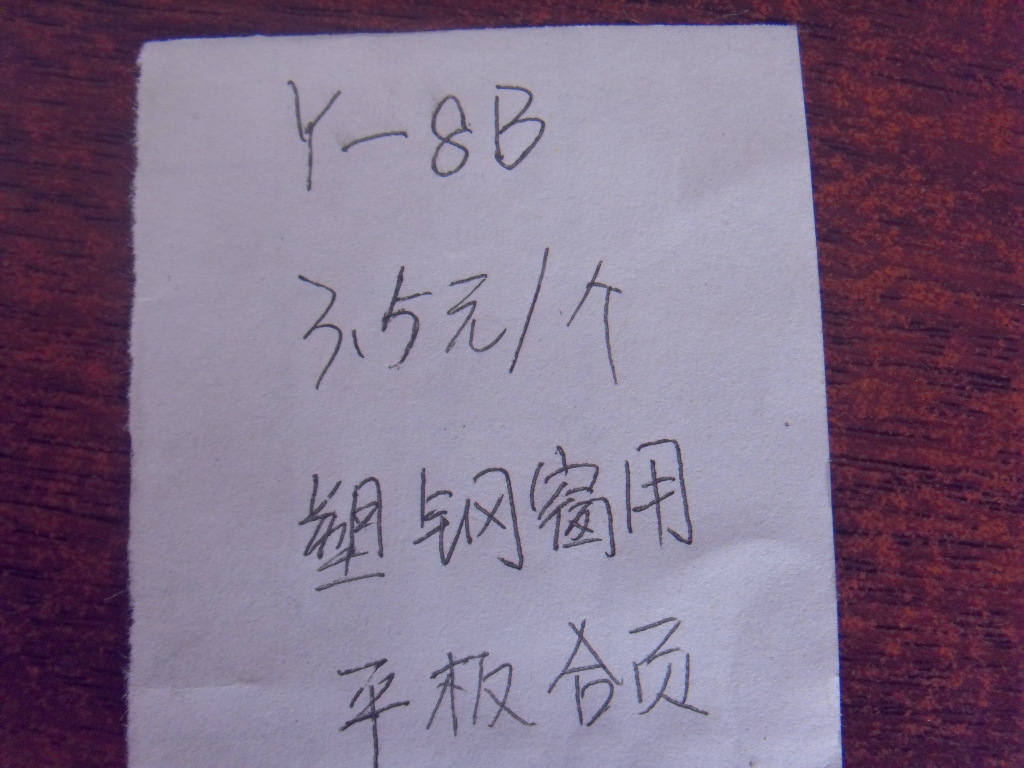 Y-8B
3.5元/个
塑钢窗用
平板合页